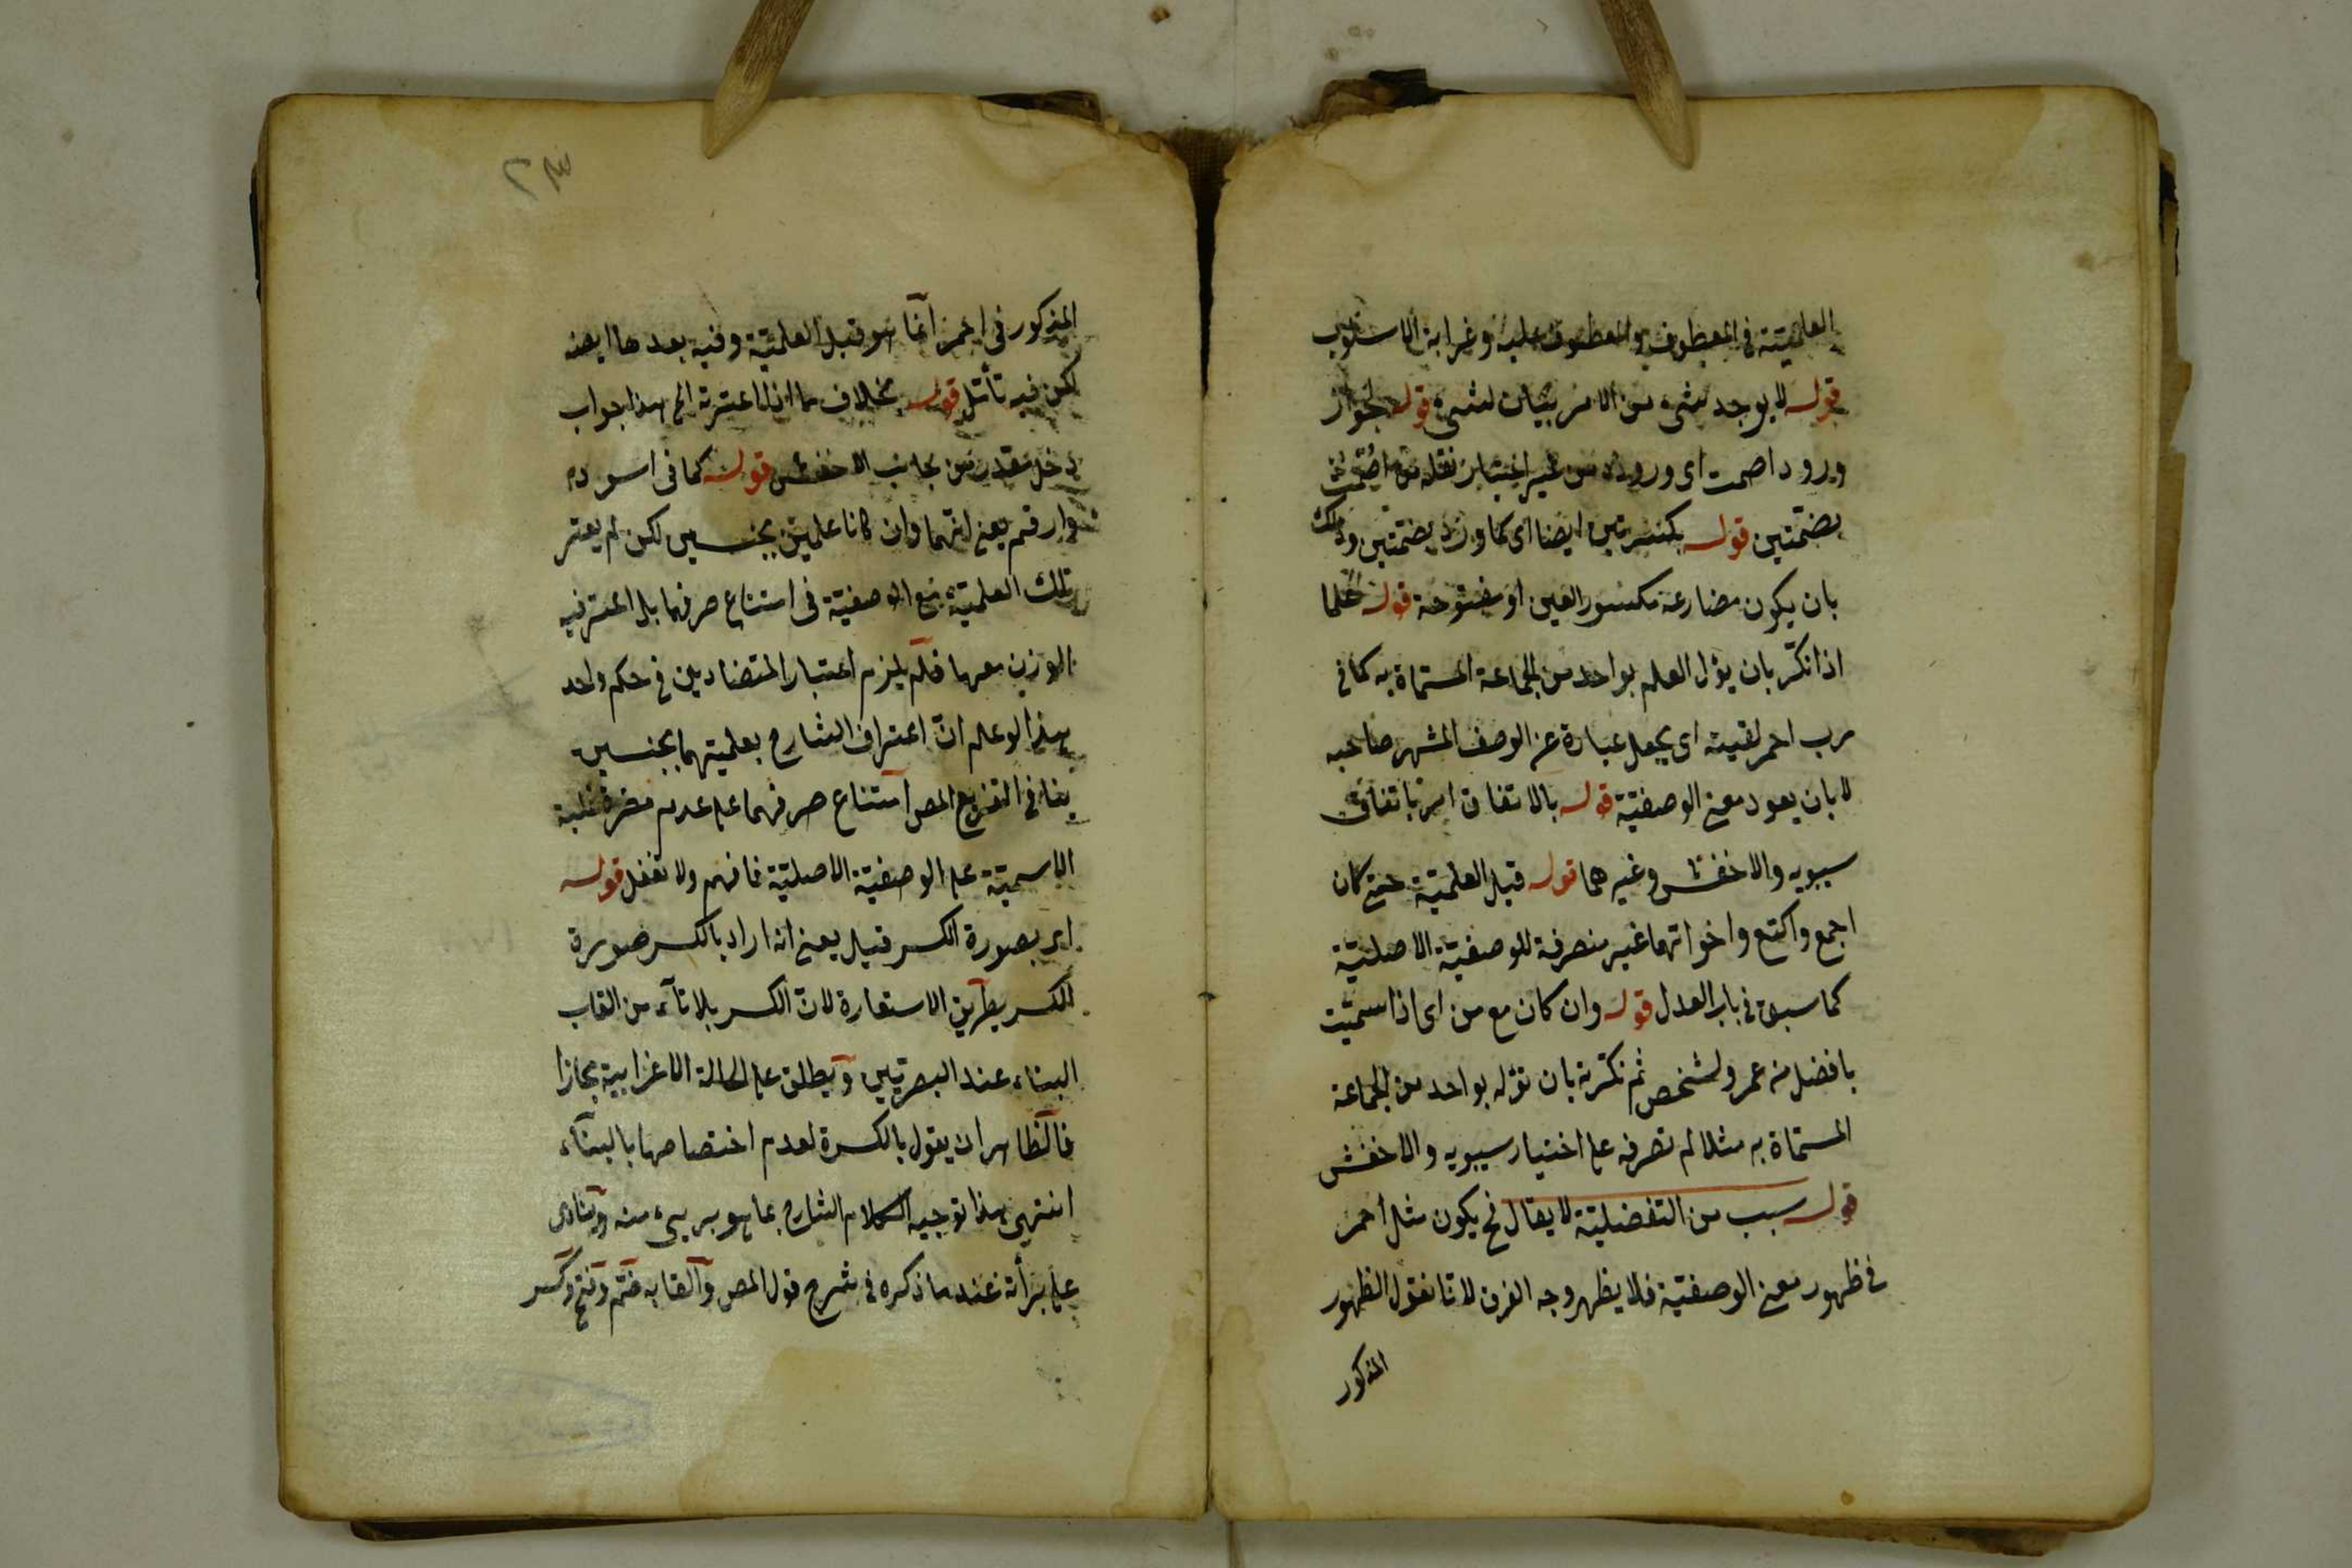 العلميّة فى المعطوف والمعطوف عليه وغرابة الاسلوب
قوله لا يوجد شىء من الامر بيان لشىء قوله لجواز
ورود اصمت اى وروده من غير اعتبار نقله من اصمت
بضمّتين قوله بكسرتين ايضا اى كما ورد بضمتين وذلك
بان يكون مضارعه مكسور العين او مفتوحة قوله علما
اذا نكّر بان يؤل العلم بواحد من الجماعة المسمّاة به كما فى
رب احمر لقيته اى يجعل عبارة عن الوصف المشهر صاحبه
لا بان يعود معنى الوصفيّة قوله بالاتفاق اى باتفاق
سيبويه والاخفش وغيرهما قوله قبل العلميّة حتى كان
اجمع واكتع واخواتهما غير منصرفة للوصفيّة الاصليّة
كما سبق فى باب العدل قوله وان كان مع من اى اذا سمّيت
بافضل من عمرو لشخص ثم نكّرته بان تؤله بواحد من الجماعة
المسمّاة به مثلا لم تصرفه على اختيار سيبويه والاخفش
قوله سبب من التفضليّة لا يقال فح يكون مثل احمر
فى ظهور معنى الوصفيّة فلا يظهر وجه الفرق لانا نقول الظهور
المذكور
٢٣
المذكور فى احمر انما هو قبل العلميّة وفيه بعدها ايضا
لكن فيه تأمّل قوله بخلاف ما اذا اعتبرته الخ هذا جواب
دخل مقدر من جانب الاخفش قوله كما فى اسود
وارقم يعنى انّهما وان كانا علمين بجنسين لكن لم يعتبر
تلك العلميّة مع الوصفيّة فى امتناع صرفهما بل اعتبر فيه
الوزن معها فلم يلزم اعتبار المتضادين فى حكم واحد
هذا لو علم انّ اعتراف الشارح بعلميتهما بجنسين
ينافى التفريع المص امتناع صرفهما على عدم مضرة غلبة
الاسميّة على الوصفيّة الاصليّة فافهم ولا تغفل قوله
اى بصورة الكسر قيل يعنى انه اراد بالكسر صورة
الكسر بطريق الاستعارة لانّ الكسر بلا تاء من القاب
البناء عند البصريّين ويطلق على الحالة الاعرابية مجازا
فالظاهر ان يقول بالكسرة لعدم اختصاصها بالبناء
انتهى هذا توجيه الكلام الشارح بما هو برىء منه وينادى
على برأته عنه ما ذكره فى شرح قول المص والقابه ضمّ وفتح وكسر